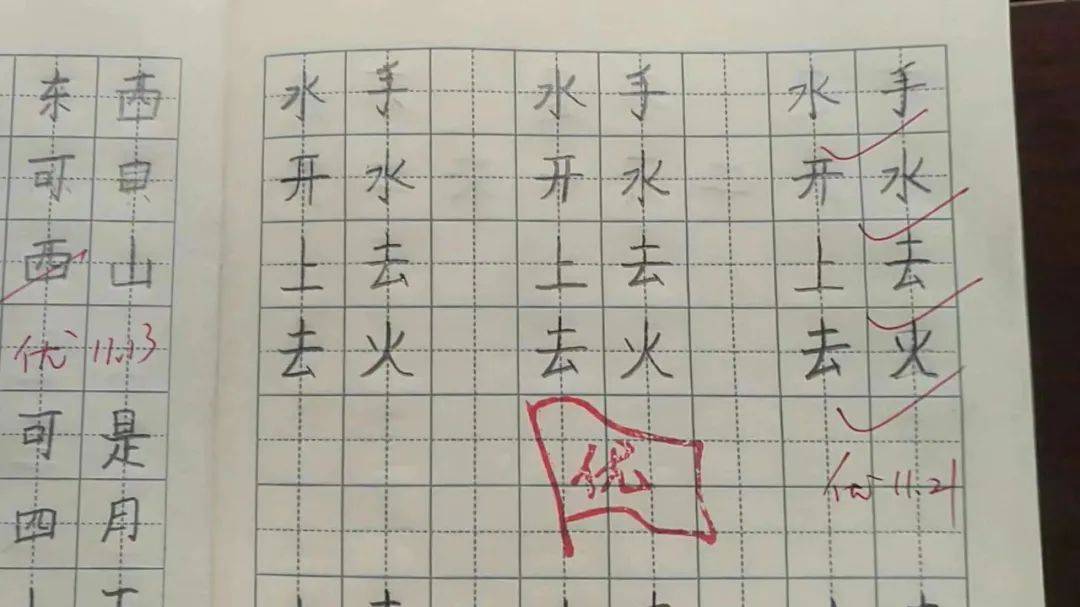 东西
可
西山
优 11.13
可是
四月
水手 水手 水手
开水 开水 开水
上去 上去 上去
去火 去火 去火
优
优 11.21